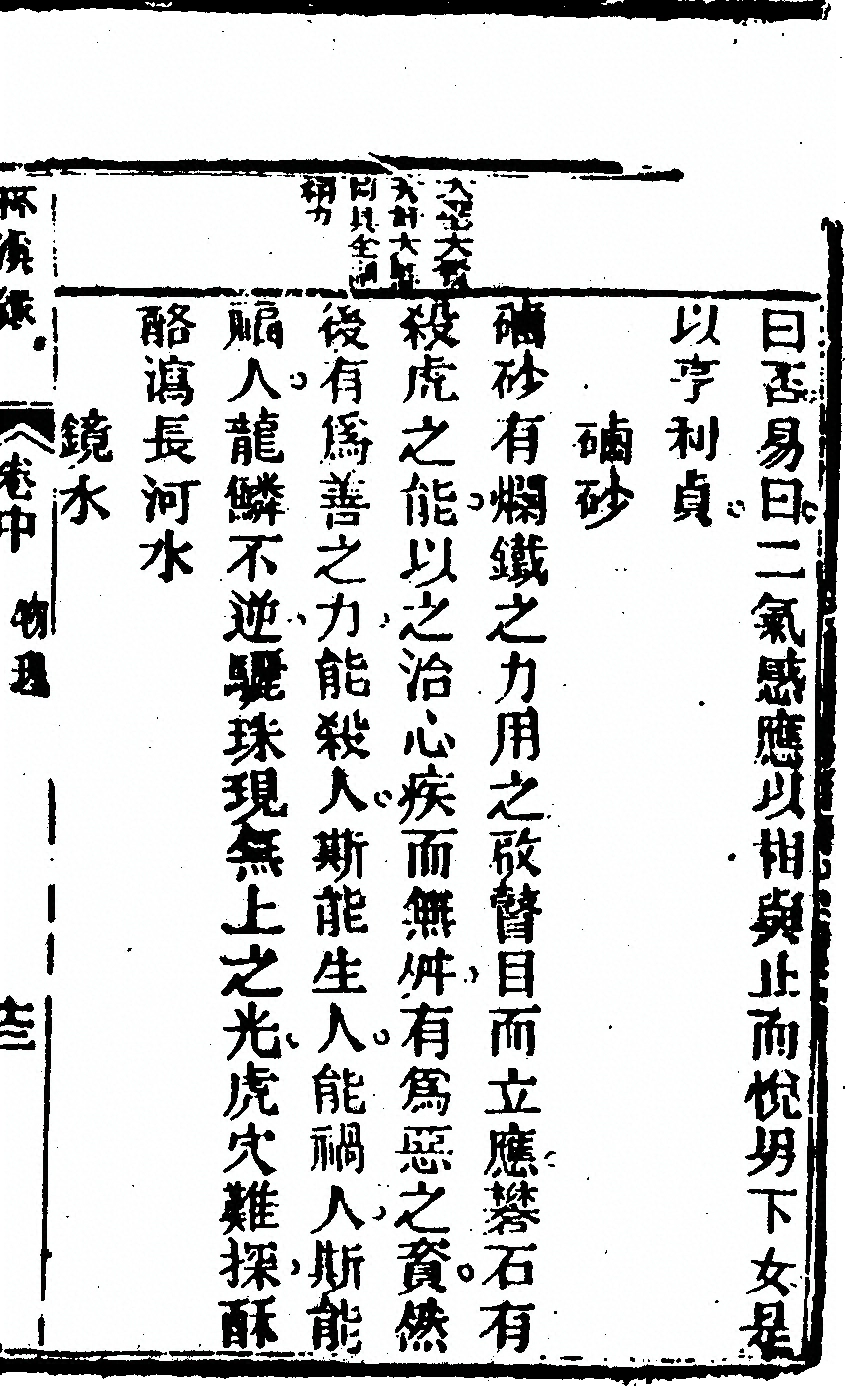 曰否易曰二氣感應以相與止而悅男下女是
以亨利貞
硇砂
硇砂有爛鐵之力用之啟瞽目而立應礬石有
殺虎之能以之治心疾而無舛有為惡之資然
後有為善之力能殺人斯能生人能禍人斯能
福人龍鱗不逆驪珠現無上之光虎穴難探酥
酪瀉長河水
鏡水
卷中
物理
十三